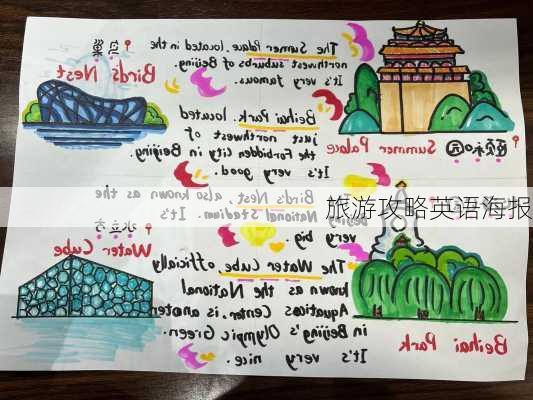 鸟巢
Bird's Nest
The Sumer Palace. located in the
northwest suburbs of Beijing.
It's very famous.
颐和园
Summer Palace
Beihai Park. located
just northwest of
the Forbidden City in Beijing.
It's very good.
Bird's Nest, also known as the
National Stadium. It's
very big.
旅游攻略英语海报
水立方
Water Cube
The Water Cube officially
known as the National
Aquatics Center, is anoter
in Beijing's Olympic Green.
It's very nice.
Beihai Park